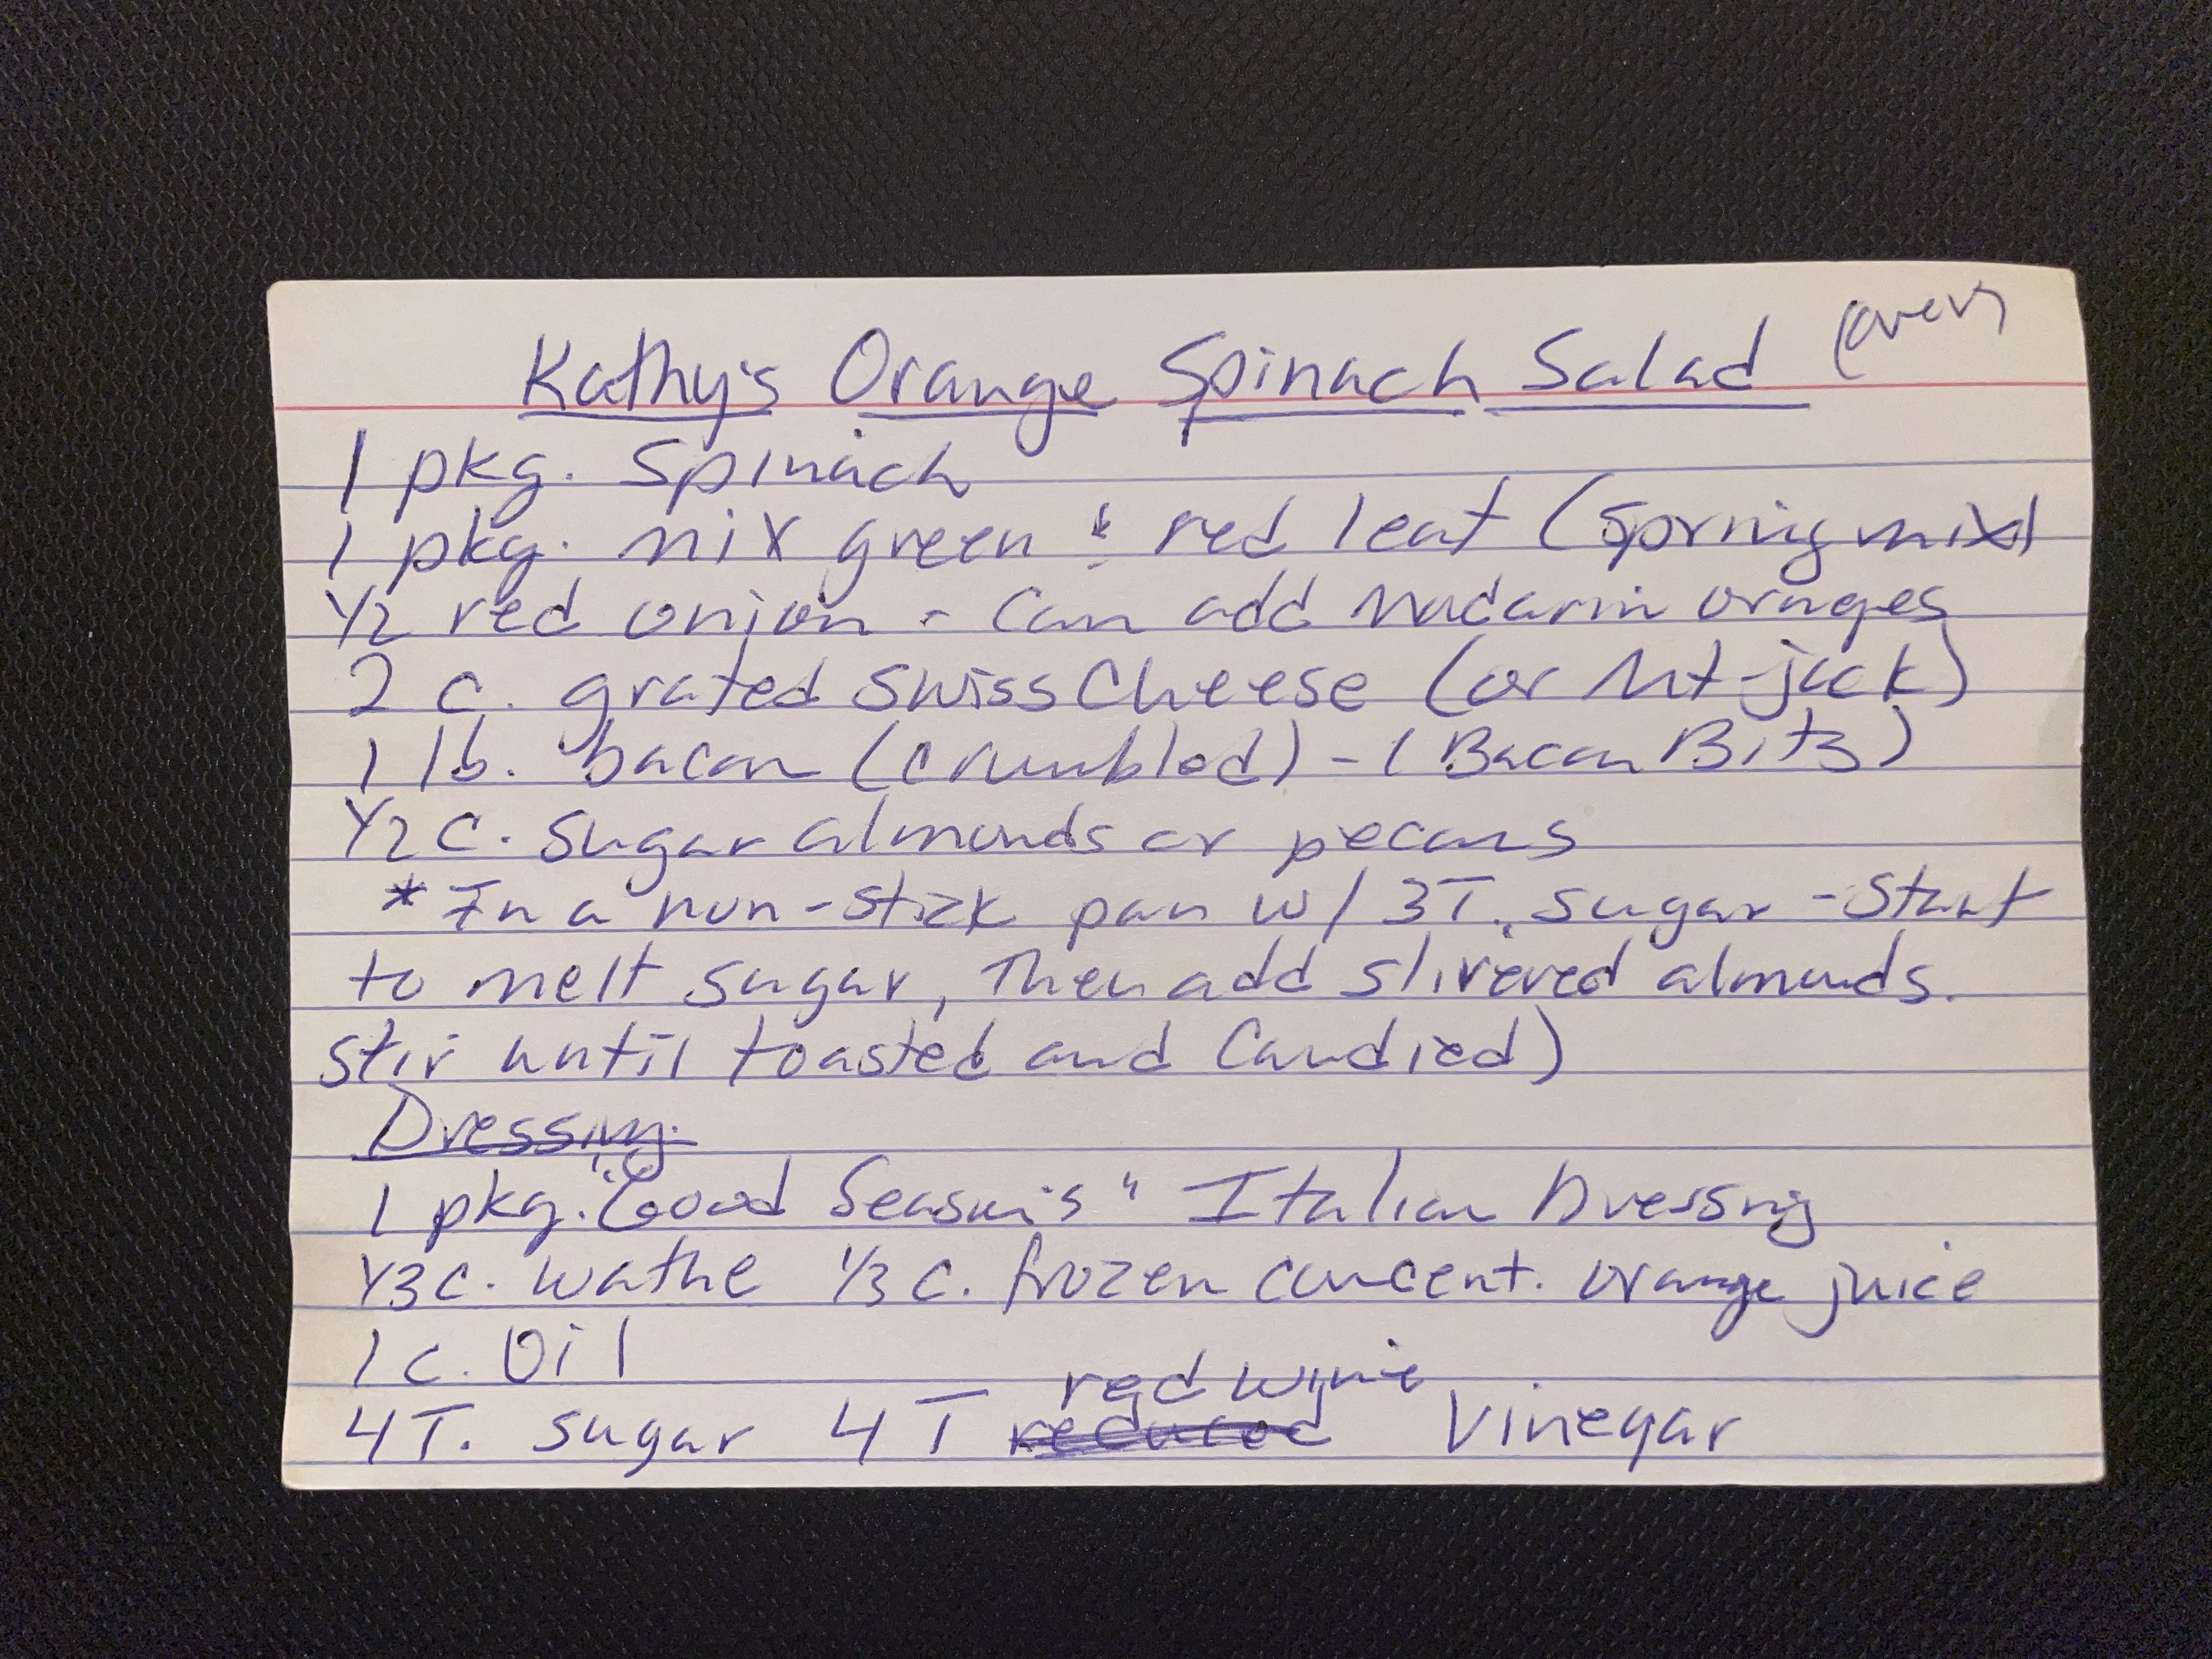 Kathy's Orange Spinach Salad (over)
1 pkg. spinach
1 pkg. mix green & red leaf (spring mix)
1/2 red onion - can add Madarin oranges
2 c. grated swiss Cheese (or Mt-jack)
1 lb. bacon (crumbled) - (Bacon Bits)
1/2 c. sugar almonds or pecans
* In a non-stick pan w/ 3T. sugar - Start
to melt sugar, Then add slivered almonds.
stir until toasted and Candied)
Dressing.
1 pkg. "Good Season's" Italian Dressing
1/3 c. wathe 1/3 c. frozen concent. orange juice
1 c. Oil
4T. sugar 4 T reduced red wine Vinegar